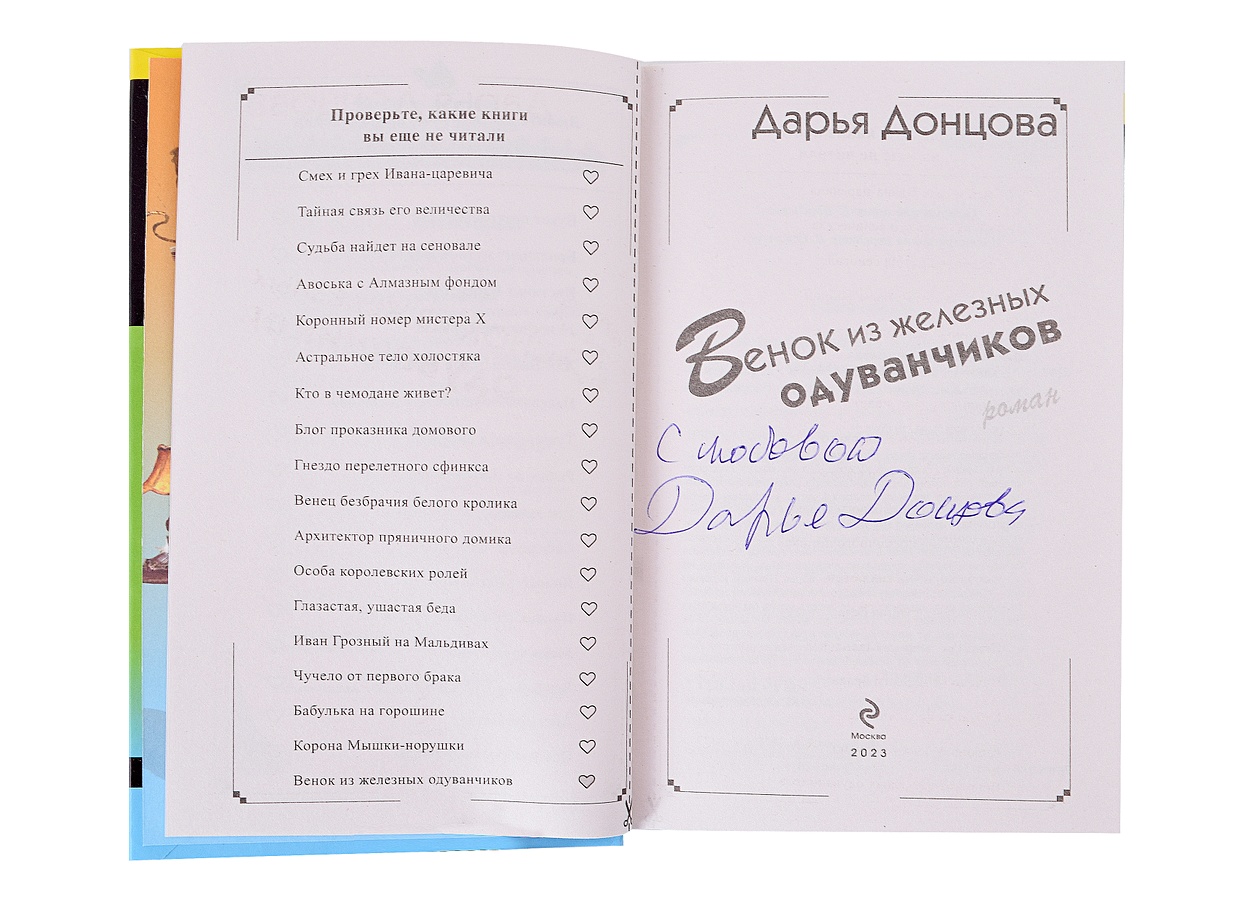 Проверьте, какие книги
вы еще не читали
Смех и грех Ивана-царевича
Тайная связь его величества
Судьба найдет на сеновале
Авоська с Алмазным фондом
Коронный номер мистера Х
Астральное тело холостяка
Кто в чемодане живет?
Блог проказника домового
Гнездо перелетного сфинкса
Венец безбрачия белого кролика
Архитектор пряничного домика
Особа королевских ролей
Глазастая, ушастая беда
Иван Грозный на Мальдивах
Чучело от первого брака
Бабулька на горошине
Корона Мышки-норушки
Венок из железных одуванчиков
Дарья Донцова
Венок из железных
одуванчиков
роман
С любовью
Дарья Донцова
Москва
2023